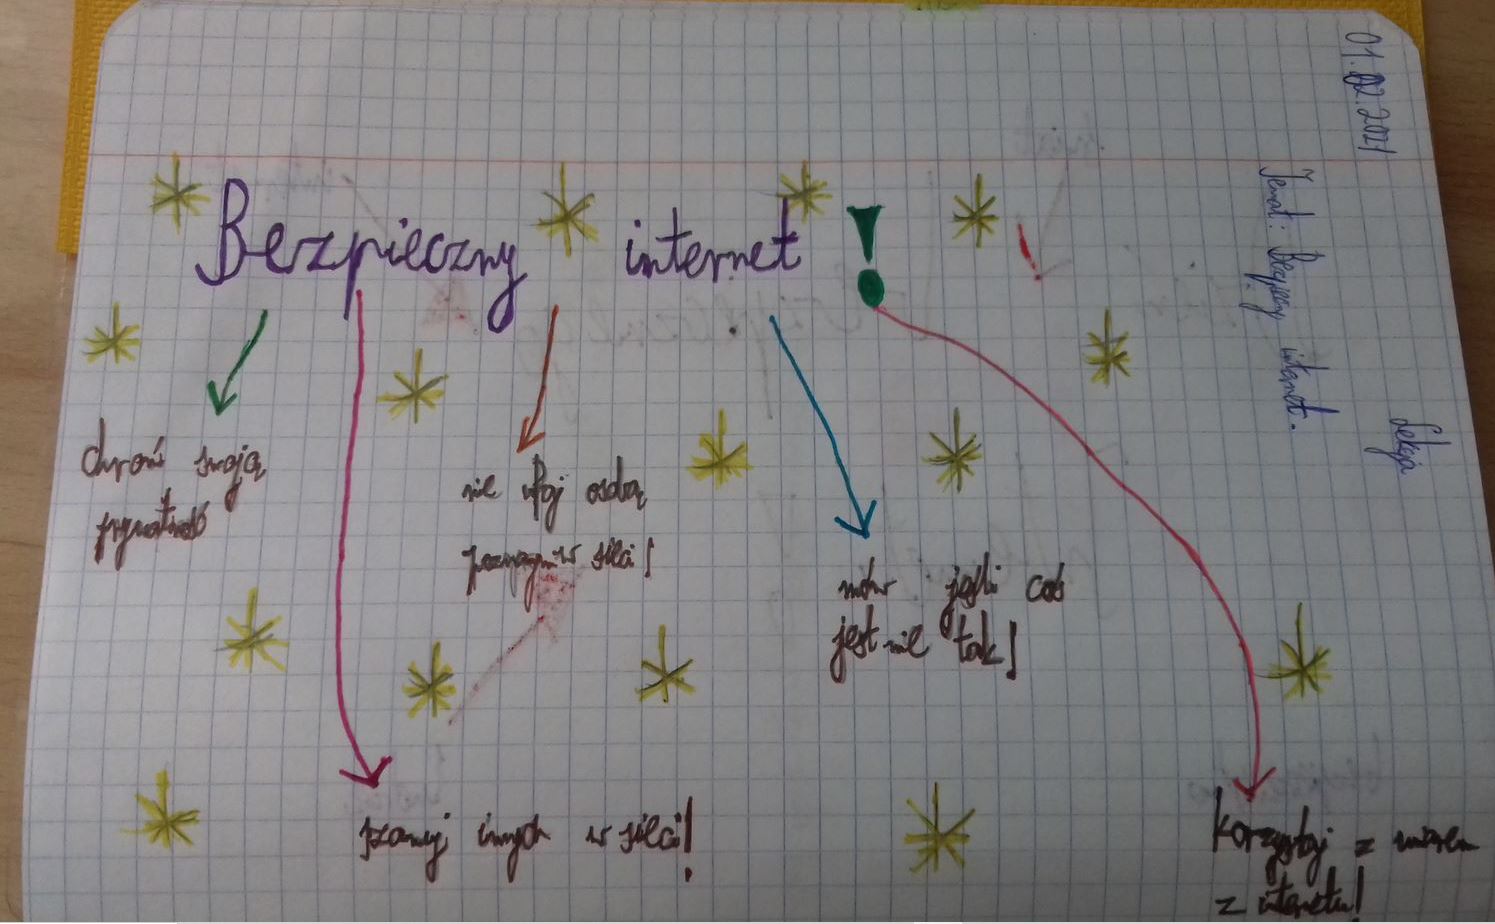 01.02.2021
Lekcja
Temat: Bezpieczny internet.
Bezpieczny internet!
chroń swoją
prywatność
nie ufaj osobą
poznanym w sieci!
mów jeśli coś
jest nie tak!
szanuj innych w sieci!
Korzystaj z umiarem
z internetu!